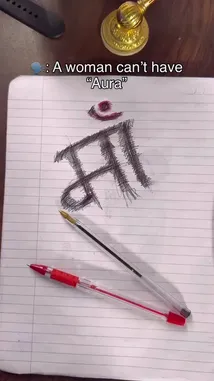 🗣️: A woman can't have
"Aura"
माँ